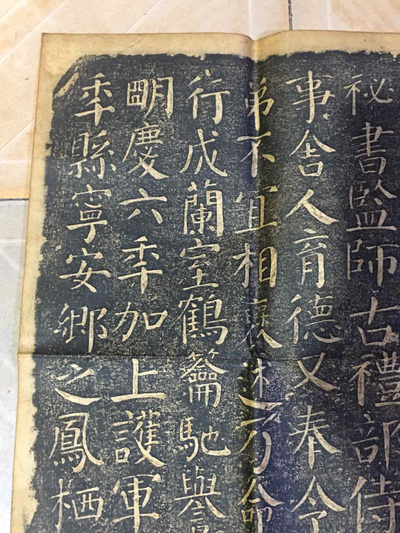 祕書監師古禮部侍
事舍人育德又奉令
弟不宜相褒述乃命
行成蘭室鶴籥馳譽
眀慶六秊加上護軍
秊縣寧安鄉之鳳栖